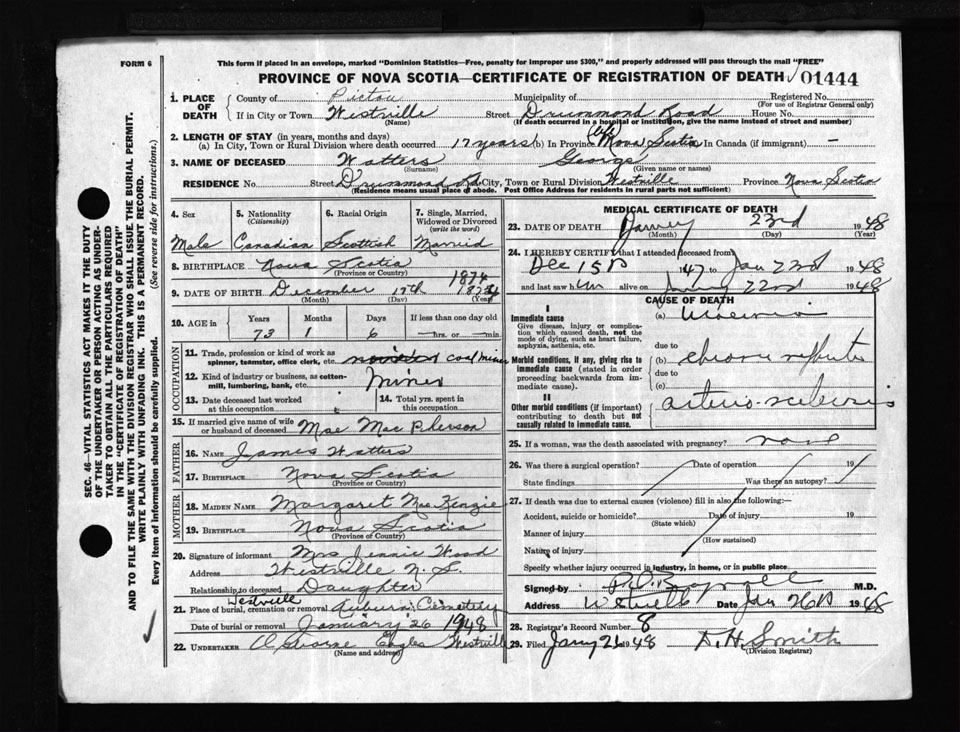 FORM 6
This form if placed in an envelope, marked "Dominion Statistics—Free, penalty for improper use $300," and properly addressed will pass through the mail "FREE"
PROVINCE OF NOVA SCOTIA—CERTIFICATE OF REGISTRATION OF DEATH 01444
SEC. 46—VITAL STATISTICS ACT MAKES IT THE DUTY
OF THE UNDERTAKER OR PERSON ACTING AS UNDER-
TAKER TO OBTAIN ALL THE PARTICULARS REQUIRED
IN THE "CERTIFICATE OF REGISTRATION OF DEATH"
AND TO FILE THE SAME WITH THE DIVISION REGISTRAR WHO SHALL ISSUE THE BURIAL PERMIT.
WRITE PLAINLY WITH UNFADING INK. THIS IS A PERMANENT RECORD.
Every item of information should be carefully supplied. (See reverse side for instructions.)
1. PLACE OF DEATH County of Pictou Municipality of Registered No.
(For use of Registrar General only)
If in City or Town Westville Street Drummond Road House No.
(Name) (If death occurred in a hospital or institution, give the name instead of street and number)
2. LENGTH OF STAY (in years, months and days)
(a) In City, Town or Rural Division where death occurred 17 years (b) In Province (life) Nova Scotia In Canada (if immigrant) —
3. NAME OF DECEASED Watters George
(Surname) (Given name or names)
RESIDENCE No. Street Drummond Rd City, Town or Rural Division Westville Province Nova Scotia
(Residence means usual place of abode. Post Office Address for Residents in rural parts not sufficient)
4. Sex 5. Nationality (Citizenship) 6. Racial Origin 7. Single, Married, Widowed or Divorced (write the word)
Male Canadian Scottish Married
8. BIRTHPLACE Nova Scotia
(Province or Country)
1874
9. DATE OF BIRTH December 17th 1874
(Month) (Day) (Year)
10. AGE in Years Months Days If less than one day old
73 1 6 hrs. or min.
OCCUPATION
11. Trade, profession or kind of work as spinner, teamster, office clerk, etc. coal miner
12. Kind of industry or business, as cotton-mill, lumbering, bank, etc. Miner
13. Date deceased last worked at this occupation 14. Total yrs. spent in this occupation
15. If married give name of wife or husband of deceased Mae MacPherson
FATHER
16. NAME James Watters
17. BIRTHPLACE Nova Scotia
(Province or Country)
MOTHER
18. MAIDEN NAME Margaret MacKenzie
19. BIRTHPLACE Nova Scotia
(Province or Country)
20. Signature of informant Mrs Jennie Wood
Address Westville N. S.
Relationship to deceased Daughter
Westville
21. Place of burial, cremation or removal Auburn Cemetery
Date of burial or removal January 26 1948
22. UNDERTAKER George Eagles Westville
(Name and address)
MEDICAL CERTIFICATE OF DEATH
23. DATE OF DEATH January 23rd 1948
(Month) (Day) (Year)
24. I HEREBY CERTIFY that I attended deceased from
Dec 15th 1947 to Jan 23rd 1948
and last saw him alive on 22nd 1948
CAUSE OF DEATH
I
Immediate cause (a) Uraemia
Give disease, injury or complication which caused death, not the mode of dying, such as heart failure, asphyxia, asthenia, etc. due to
Morbid conditions, if any, giving rise to immediate cause (stated in order proceeding backwards from immediate cause). (b) chronic nephritis
due to
(c)
II
Other morbid conditions (if important) contributing to death but not causally related to immediate cause. arterio-sclerosis
25. If a woman, was the death associated with pregnancy?
26. Was there a surgical operation? Date of operation 19
State findings Was there an autopsy?
27. If death was due to external causes (violence) fill in also the following:—
Accident, suicide or homicide? Date of injury 19
(State which)
Manner of injury
(How sustained)
Nature of injury
Specify whether injury occurred in industry, in home, or in public place
Signed by M.D.
Address Westville Date Jan 26th 1948
28. Registrar's Record Number 8
29. Filed Jany 26 1948 A. H. Smith
(Division Registrar)